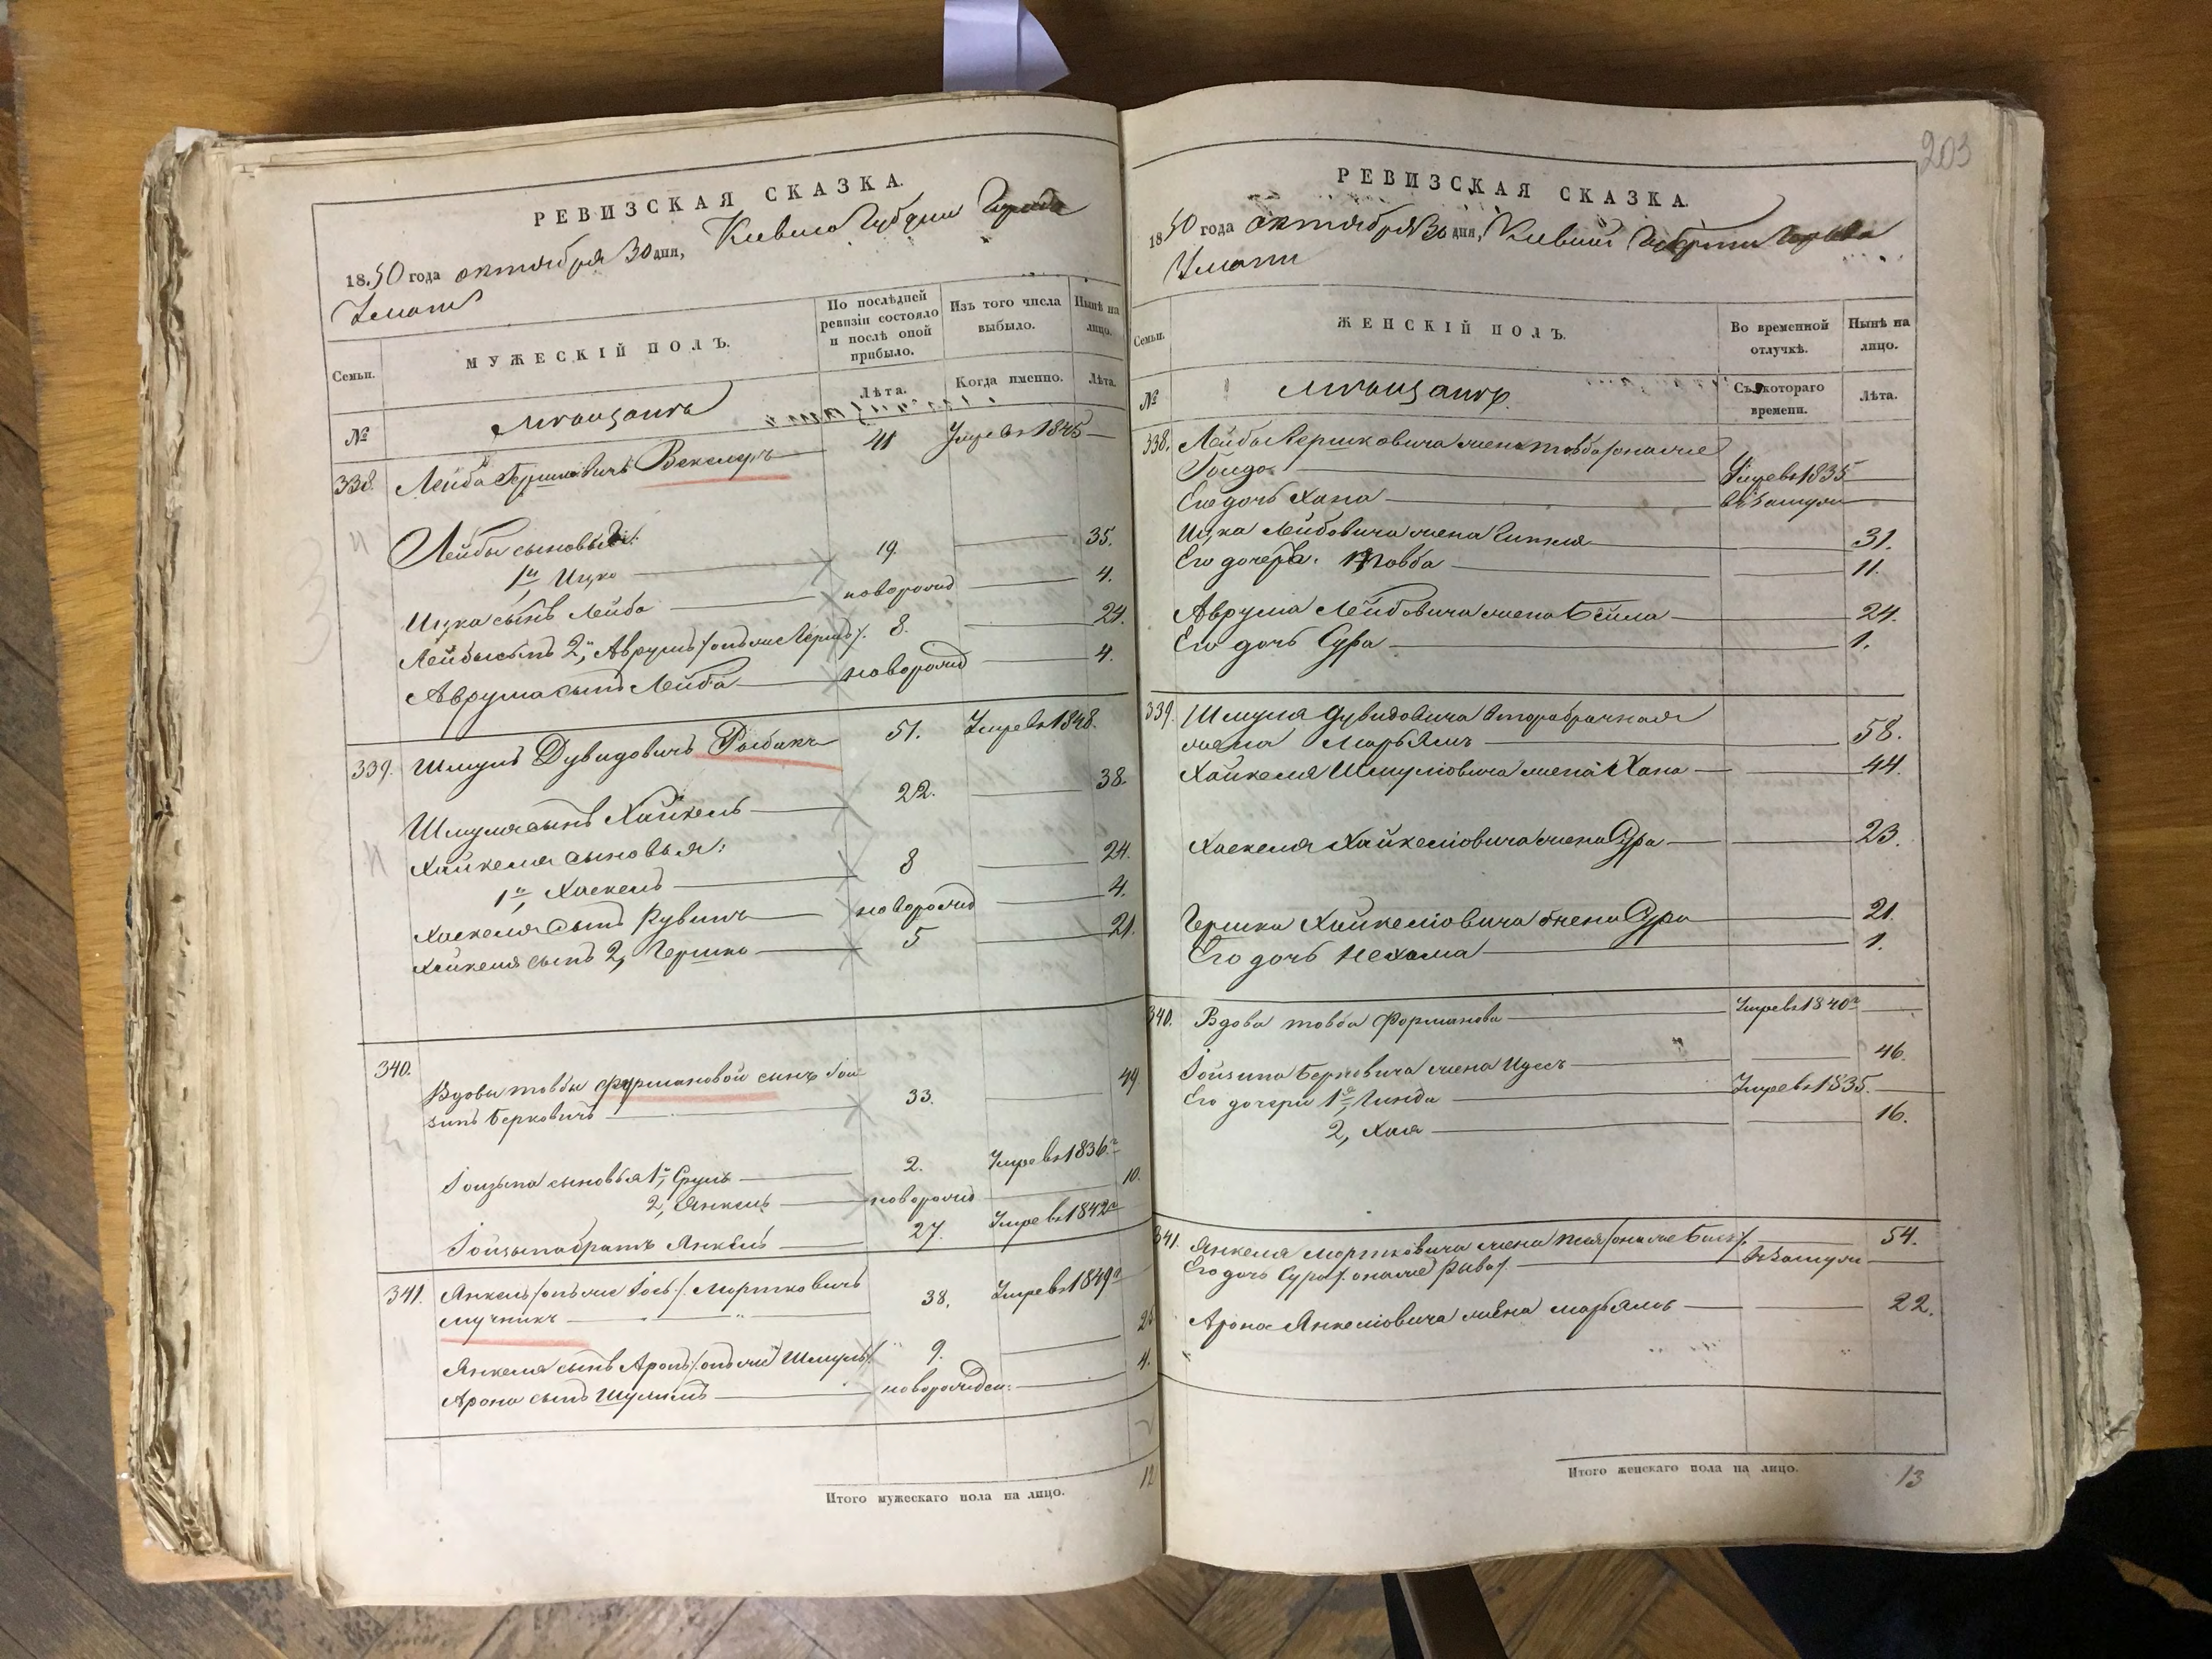 РЕВИЗСКАЯ СКАЗКА.
1850 года октября 30 дня, Киевской Губернии Города
Умани
Семьи.
МУЖЕСКІЙ ПОЛЪ.
По послѣдней ревизіи состояло и послѣ оной прибыло.
Изъ того числа выбыло.
Нынѣ на лицо.
№
Лѣта.
Когда именно.
Лѣта.
Мѣщанѣ
338. Лейба Гершковичъ Векслеръ 41 Умре въ 1845
Лейбы сыновья:
1й Ицко 19. 35.
Ицка сынъ Лейба новорожд 4.
Лейбы сынъ 2й, Аврумъ /онъ же Герш/. 8. 24.
Аврума сынъ Лейба новорожд 4.
339. Шмуль Дувидовичъ Рыбакъ 51. Умре въ 1848.
Шмуля сынъ Хайкель 22. 38.
Хайкеля сыновья:
1й, Хаскель 8 24.
Хаскеля сынъ Рувинъ новорожд 4.
Хайкеля сынъ 2, Гершко 5 21.
340. Вдовы Товбы Фурмановой сынъ Іой
зипъ Берковичъ 33. 49
сыновья 1й, Сруль 2. Умре въ 1836г
2, Янкель новорожд 10.
братъ Янкель 27. Умре въ 1842г
341. Янкель /онъ же Іось/. Мортковичъ 38, Умре въ 1849г
Мучникъ
Янкеля сынъ Аронъ /онъ же Шмуль/ 9. 25
Арона сынъ Шулимъ новорожден: 4.
Итого мужескаго пола на лицо. 12
203
РЕВИЗСКАЯ СКАЗКА.
1850 года октября 30 дня, Киевской Губернии Города
Умани
Семьи.
ЖЕНСКІЙ ПОЛЪ.
Во временной отлучкѣ.
Нынѣ на лицо.
№
Съ котораго времени.
Лѣта.
Мѣщанѣ
338. Лейбы Гершковича жена Товба /она же
Умре въ 1835
Его дочь Хана въ Замуж
Ицка Лейбовича жена Ципля 31.
Его дочерь. Товба 11.
Аврума Лейбовича жена Бейла 24.
Его дочь Сура 1.
339. Шмуля Дувидовича второбрачная
жена Марьямъ 58.
Хайкеля Шмулiовича жена Хана 44.
Хаскеля Хайкелiовича жена Сура 23.
Гершка Хайкелiовича жена Сура 21.
Его дочь Нехама 1.
340. Вдова Товба Фурманова Умре въ 1840г
Берковича жена Идесъ 46.
Его дочери 1я, Гинда Умре въ 1835.
2, Хая 16.
341. Янкеля Мортковича жена /она же 54.
Его дочь Сура /она же Рыва/. въ Замуж
Арона Янкелiовича жена Марьямъ 22.
Итого женскаго пола на лицо. 13